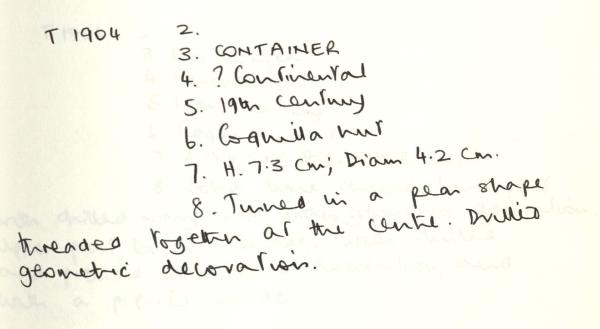 T 1904 2.
3. CONTAINER
4. ? Continental
5. 19th century
6. Coquilla nut
7. H. 7.3 cm; Diam 4.2 cm.
8. Turned in a pear shape
threaded together at the centre. Drilled
geometric decoration.